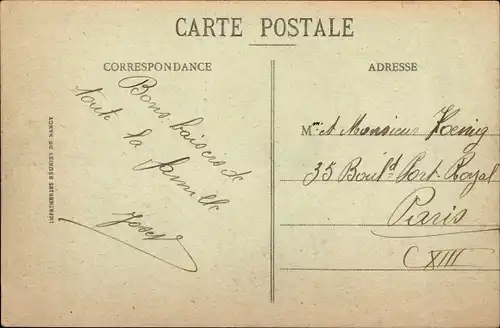 CARTE POSTALE
CORRESPONDANCE
ADRESSE
Bons baisers de
toute la famille
Josef
M.me et Monsieur Kœnig
35 Boul.d Port Royal
Paris
XIII
IMPRIMERIES RÉUNIES DE NANCY